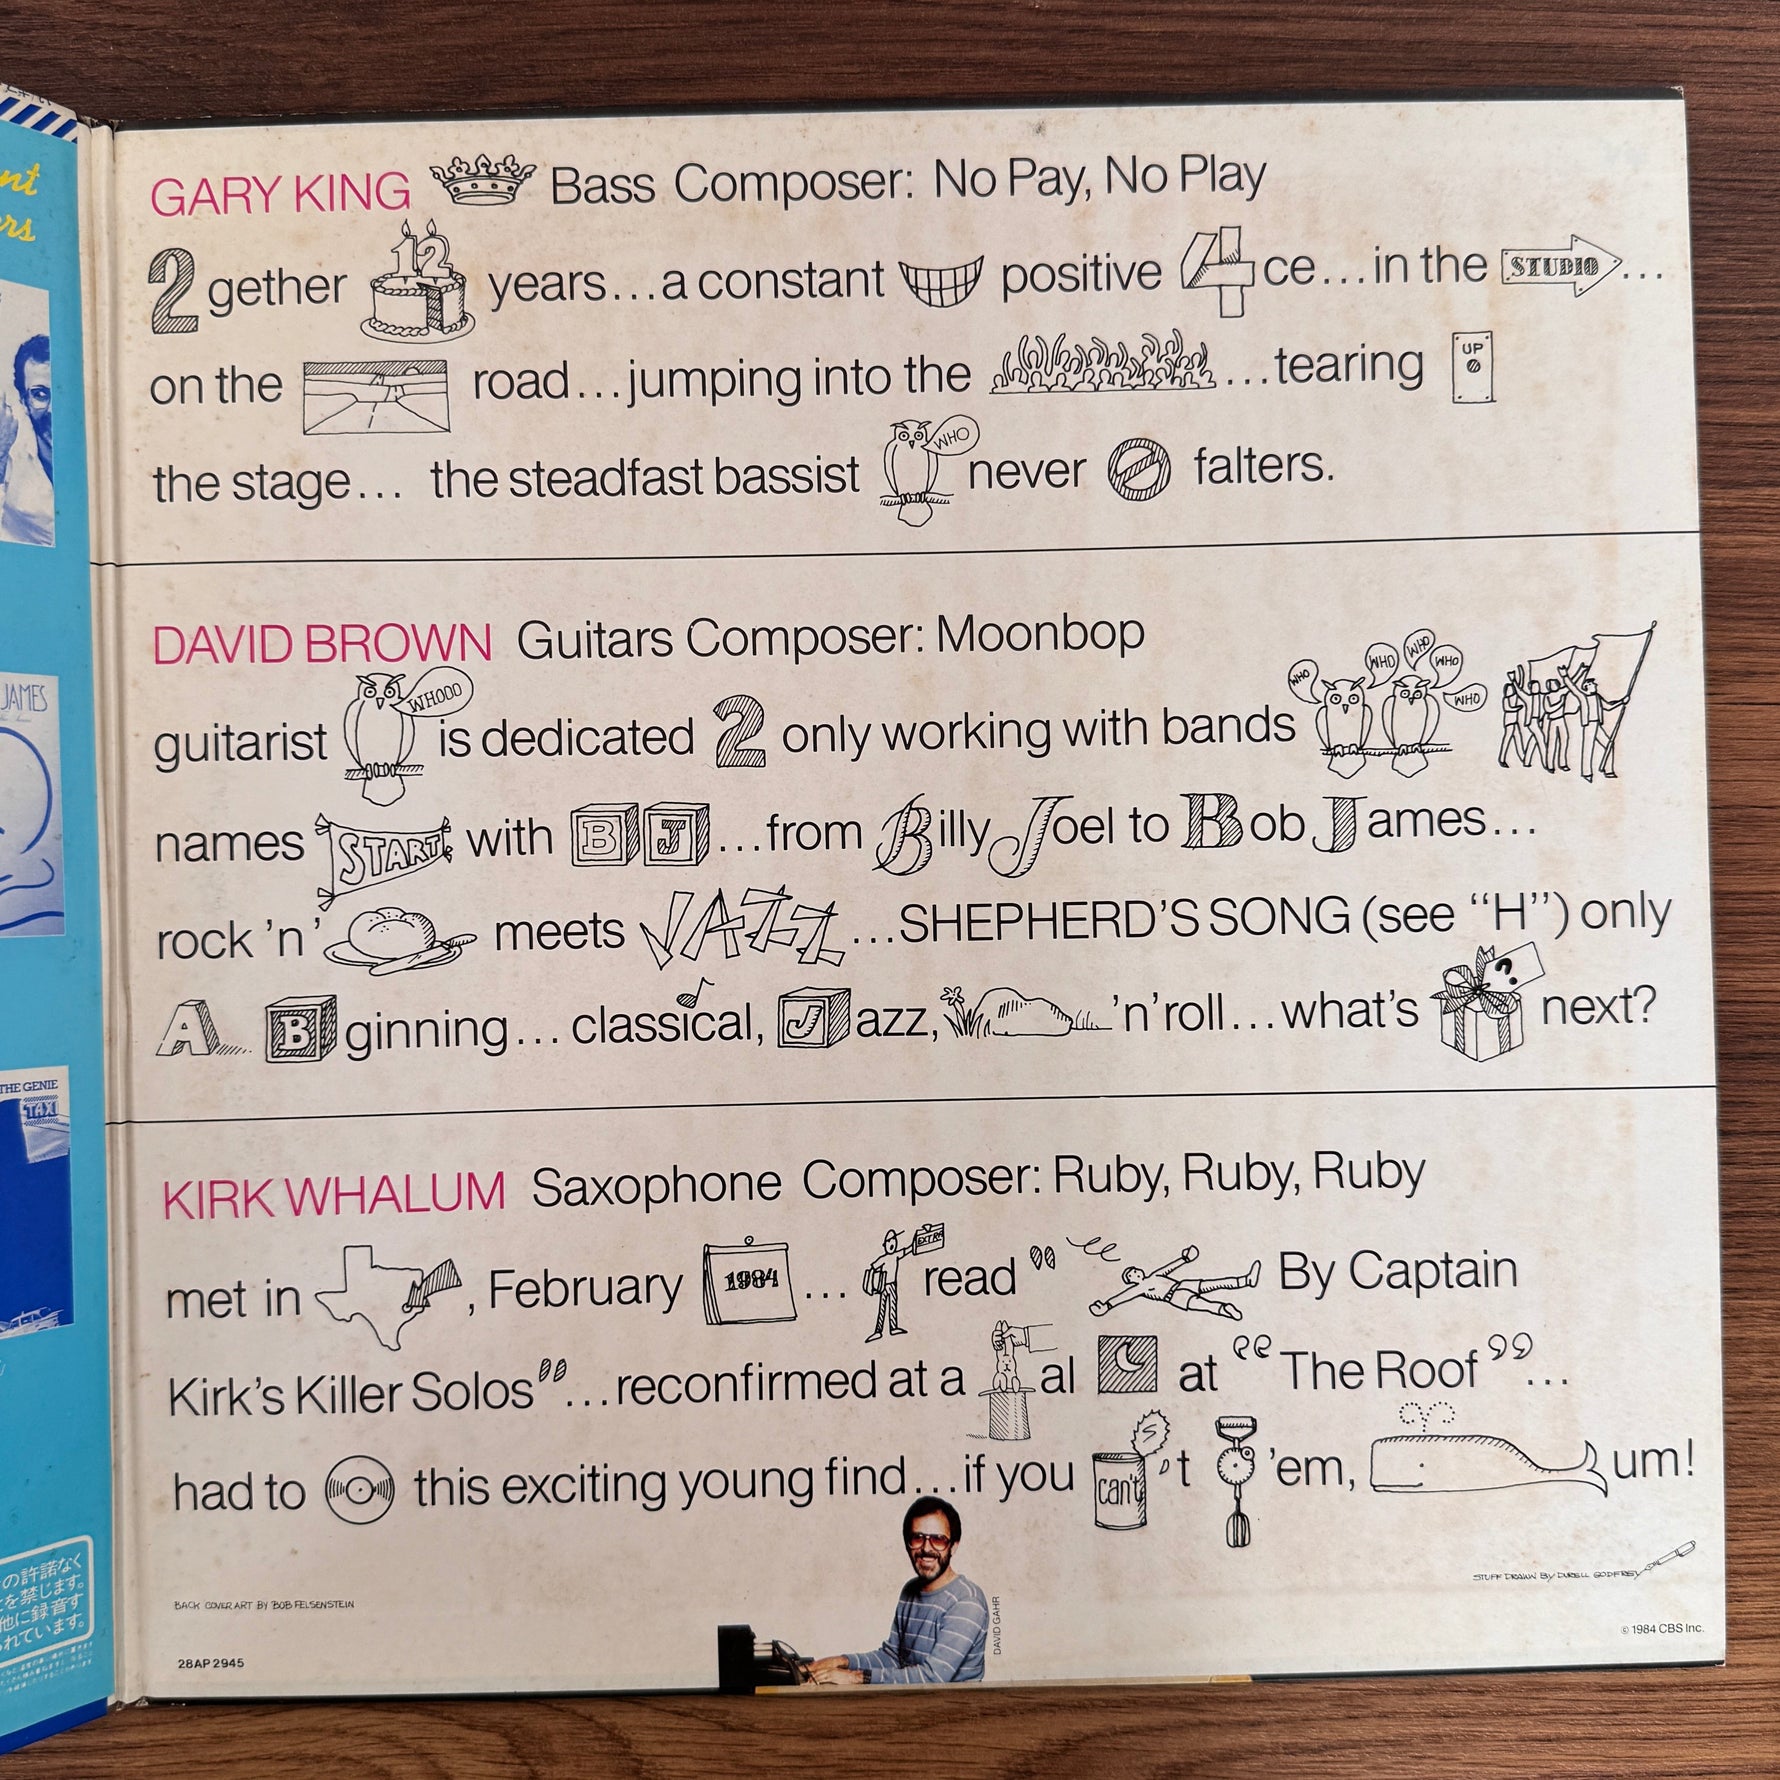 GARY KING Bass Composer: No Pay, No Play
2gether 12 years...a constant positive 4ce...in the STUDIO...
on the road...jumping into the ...tearing UP
the stage... the steadfast bassist WHO never falters.
DAVID BROWN Guitars Composer: Moonbop
guitarist WHOOO is dedicated 2 only working with bands WHO WHO WHO WHO WHO
names START with B J ...from Billy Joel to Bob James...
rock 'n' meets JAZZ...SHEPHERD'S SONG (see "H") only
A.... Bginning... classical, Jazz, 'n' roll...what's ? next?
KIRK WHALUM Saxophone Composer: Ruby, Ruby, Ruby
met in , February 1984... EXTRA read " By Captain
Kirk's Killer Solos"...reconfirmed at a al at "The Roof"...
had to this exciting young find...if you can't 't 'em, um!
STUFF DRAWN BY DURELL GODFREY
BACK COVER ART BY BOB FELSENSTEIN
DAVID GAHR
© 1984 CBS Inc.
28AP 2945
nt
rs
JAMES
THE GENIE
TAXI
の許諾なく
を禁じます。
他に録音す
れています。